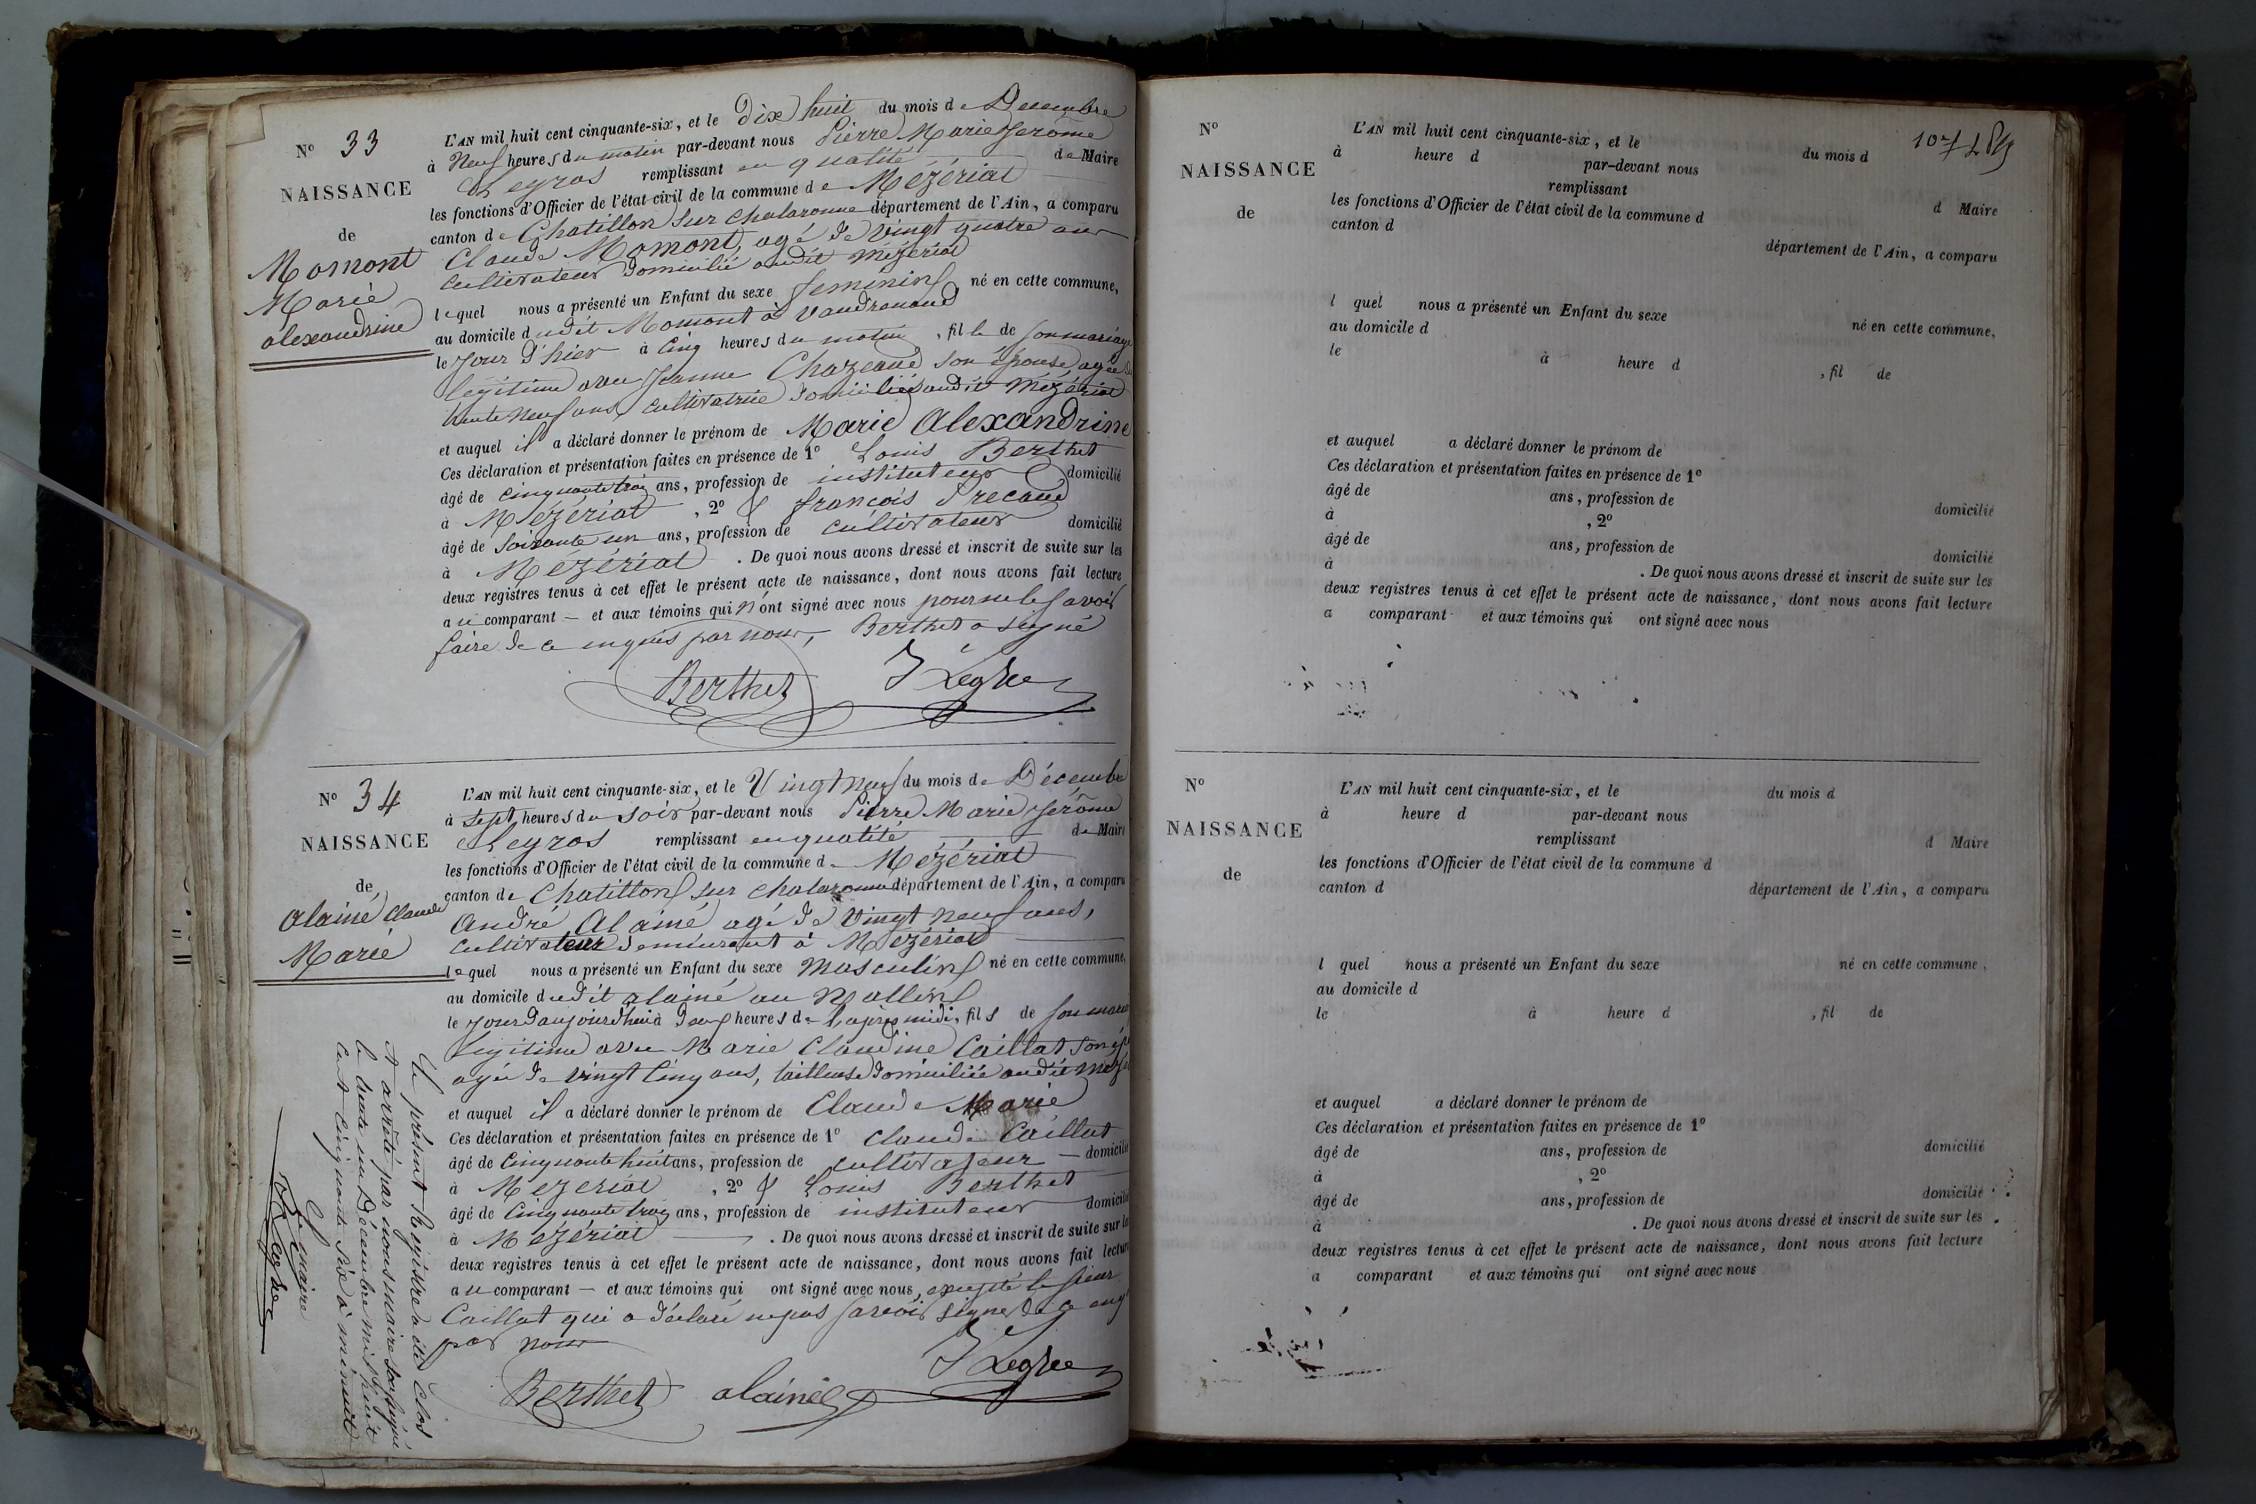 N° 33
NAISSANCE
de
Momont
Marie
alexandrine
L'AN mil huit cent cinquante-six, et le Dix huit du mois de Decembre
à Neuf heures du matin par-devant nous Pierre Marie Jerôme
remplissant en qualité de Maire
les fonctions d'Officier de l'état civil de la commune de Mézériat
canton de Chatillon sur chalaronne département de l'Ain, a comparu
Claude Momont, agé de vingt quatre ans
cultivateur domicilié audit Mézériat
lequel nous a présenté un Enfant du sexe feminin, né en cette commune,
au domicile dudit Momont à Vaudrenaud
le jour d'hier à Cinq heures du matin, fille de son mariage
légitime avec Jeanne Chazeaud son épouse, agée de
trente neuf ans cultivatrice domiciliés audit Mézériat
et auquel il a déclaré donner le prénom de Marie Alexandrine
Ces déclaration et présentation faites en présence de 1° Louis Berthet
âgé de cinquante trois ans, profession de instituteur domicilié
à Mézériat, 2° & françois
âgé de soixante un ans, profession de cultivateur domicilié
à Mézériat. De quoi nous avons dressé et inscrit de suite sur les
deux registres tenus à cet effet le présent acte de naissance, dont nous avons fait lecture
au comparant — et aux témoins qui n'ont signé avec nous pour ne le savoir
faire de ce enquis par nous, Berthet a signé
Berthet
N° 34
NAISSANCE
de
alainé Claude
Marie
L'AN mil huit cent cinquante-six, et le Vingt neuf du mois de Décembre
à sept heures du soir par-devant nous Pierre Marie Jerôme
remplissant en qualité de Maire
les fonctions d'Officier de l'état civil de la commune de Mézériat
canton de Chatillon sur chalaronne département de l'Ain, a comparu
André Alainé agé de vingt neuf ans,
cultivateur demeurant à Mézériat
lequel nous a présenté un Enfant du sexe masculin né en cette commune,
au domicile dudit alainé au
le jour d'aujourd'hui à deux heures de l'après midi, fils de son mariage
légitime avec Marie Claudine Caillat son
agée de vingt cinq ans, tailleuse domiciliée audit
et auquel il a déclaré donner le prénom de Claude Marie
Ces déclaration et présentation faites en présence de 1° Claude Caillat
âgé de Cinquante huit ans, profession de cultivateur — domicilié
à Mézériat, 2° & Louis Berthet
âgé de Cinquante trois ans, profession de instituteur domicilié
à Mézériat. De quoi nous avons dressé et inscrit de suite sur les
deux registres tenus à cet effet le présent acte de naissance, dont nous avons fait lecture
au comparant — et aux témoins qui ont signé avec nous, excepté le sieur
Caillat qui a déclaré ne pas savoir signer de ce enq
par nous
Berthet alainé
Le présent Registre a été Clos
et arrêté par nous maire soussigné
le trente un Décembre mil huit
cent cinquante six à minuit
Le maire
N°
NAISSANCE
de
L'AN mil huit cent cinquante-six, et le du mois d
à heure d par-devant nous
remplissant d Maire
les fonctions d'Officier de l'état civil de la commune d
canton d département de l'Ain, a comparu
l quel nous a présenté un Enfant du sexe né en cette commune,
au domicile d
le à heure d , fil de
et auquel a déclaré donner le prénom de
Ces déclaration et présentation faites en présence de 1°
âgé de ans, profession de domicilié
à , 2°
âgé de ans, profession de domicilié
à . De quoi nous avons dressé et inscrit de suite sur les
deux registres tenus à cet effet le présent acte de naissance, dont nous avons fait lecture
a comparant et aux témoins qui ont signé avec nous
N°
NAISSANCE
de
L'AN mil huit cent cinquante-six, et le du mois d
à heure d par-devant nous
remplissant d Maire
les fonctions d'Officier de l'état civil de la commune d
canton d département de l'Ain, a comparu
l quel nous a présenté un Enfant du sexe né en cette commune,
au domicile d
le à heure d , fil de
et auquel a déclaré donner le prénom de
Ces déclaration et présentation faites en présence de 1°
âgé de ans, profession de domicilié
à , 2°
âgé de ans, profession de domicilié
à . De quoi nous avons dressé et inscrit de suite sur les
deux registres tenus à cet effet le présent acte de naissance, dont nous avons fait lecture
a comparant et aux témoins qui ont signé avec nous